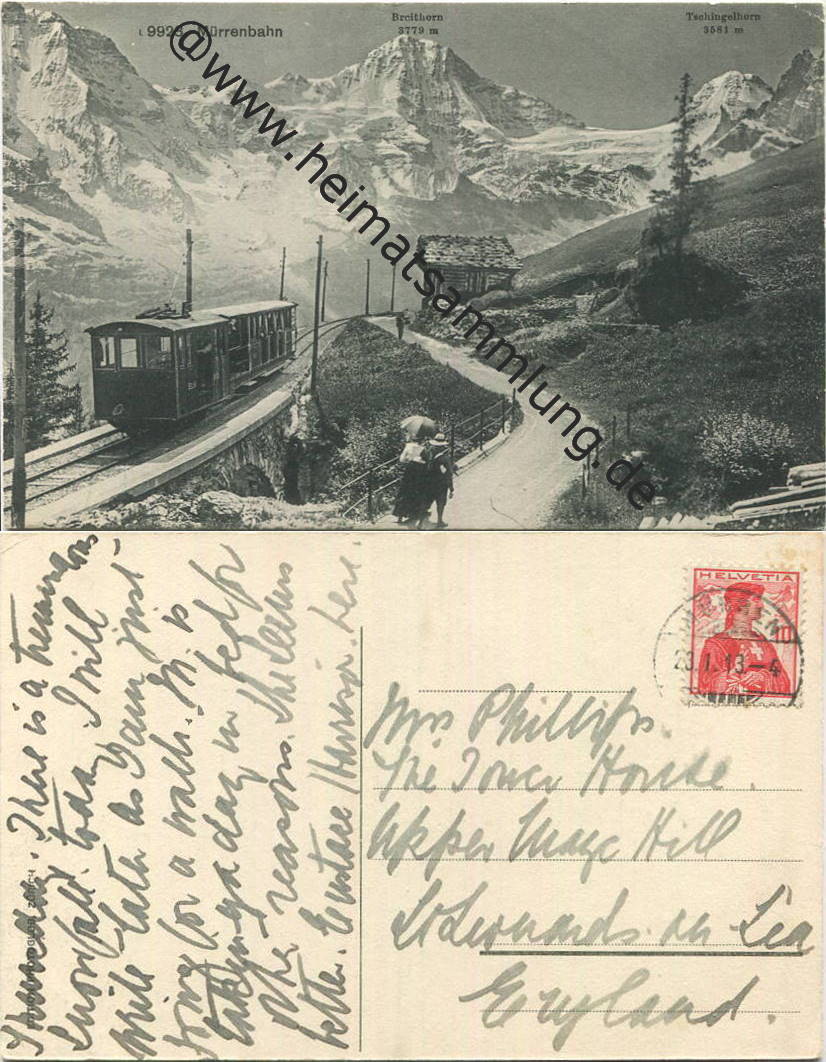 9928 Mürrenbahn
Breithorn
3779 m
Tschingelhorn
3581 m
@www.heimatsammlung.de
HELVETIA
10
23.I.13.-4
Mrs Phillips.
The Tower House.
Upper Maze Hill
St Leonards on Sea
England.
Thursday. There is a tremendous
snowfall today. I will
write later as I am just
going for a walk. M. is
taking a day in bed for
the reasons. She is
better. Eustace here.